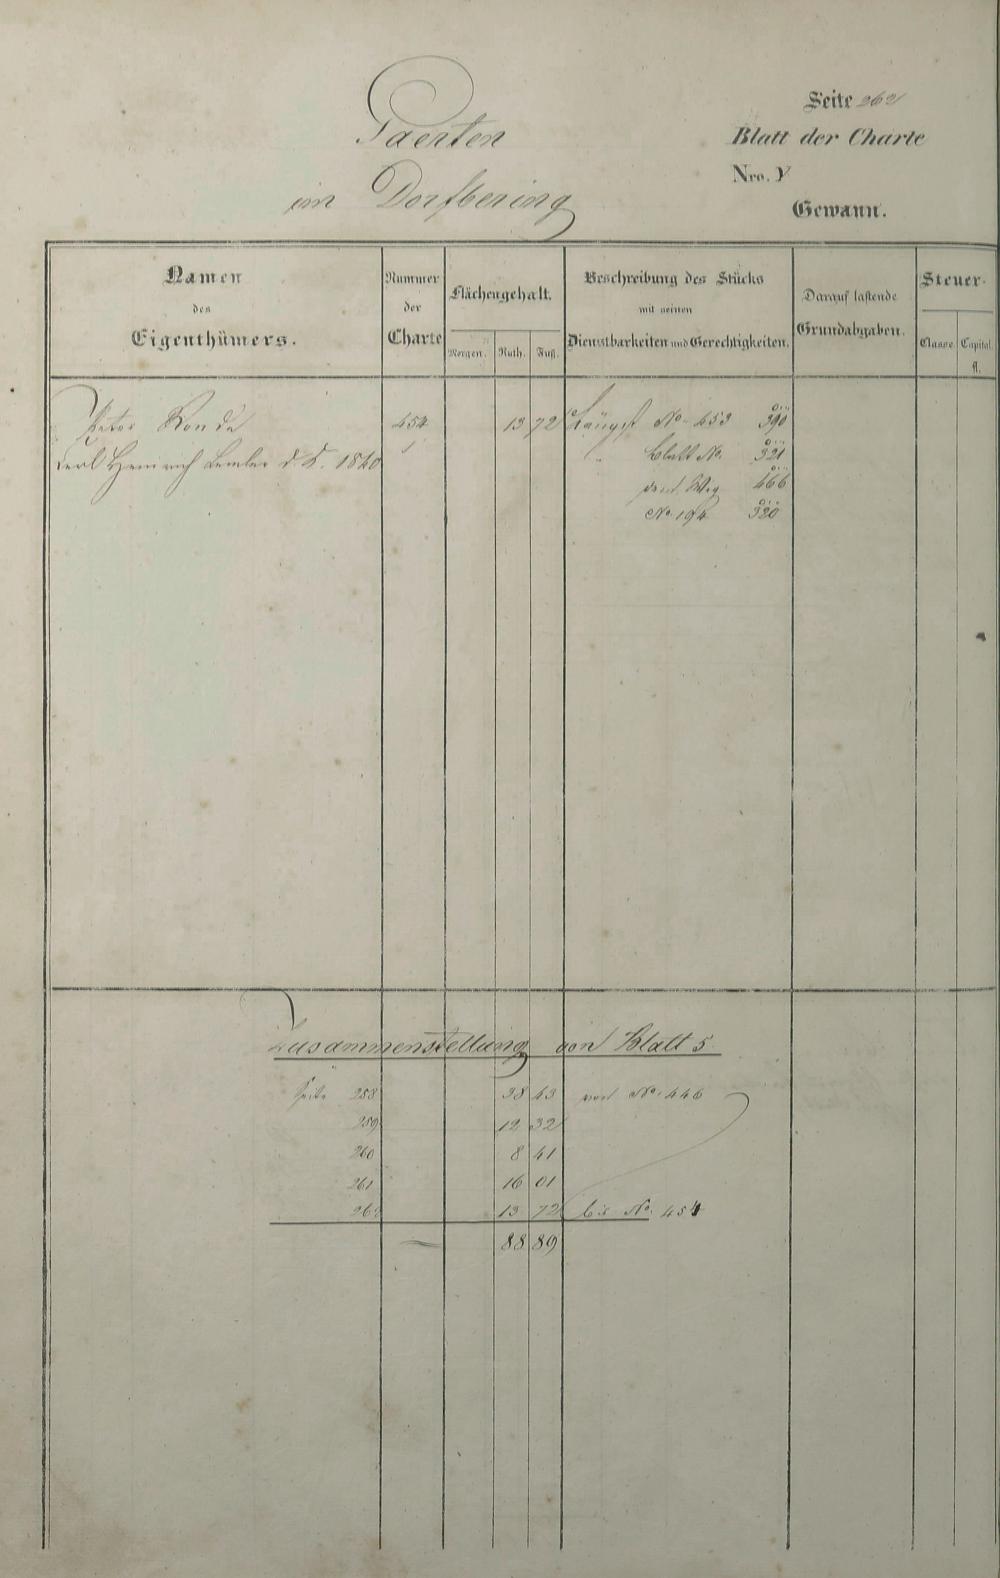 Seite 262
Gaerten
Blatt der Charte
Nro. V
im Dorfbering
Gewann.
Namen
des
Eigenthümers.
Nummer
der
Charte
Flächengehalt.
Morgen.
Ruth.
Fuß.
Beschreibung des Stücks
mit seinen
Dienstbarkeiten und Gerechtigkeiten.
Darauf lastende
Grundabgaben.
Steuer-
Classe.
Capital.
fl.
Peter 454 13 72 Längst No. 453 390
Carl Heinrich 1840 Blatt No. 321
Weg 466
No. 194 320
Zusammenstellung von Blatt 5
Seite 258 38 43 von No. 446
259 12 32
260 8 41
261 16 01
262 13 72 bis No. 454
88 89